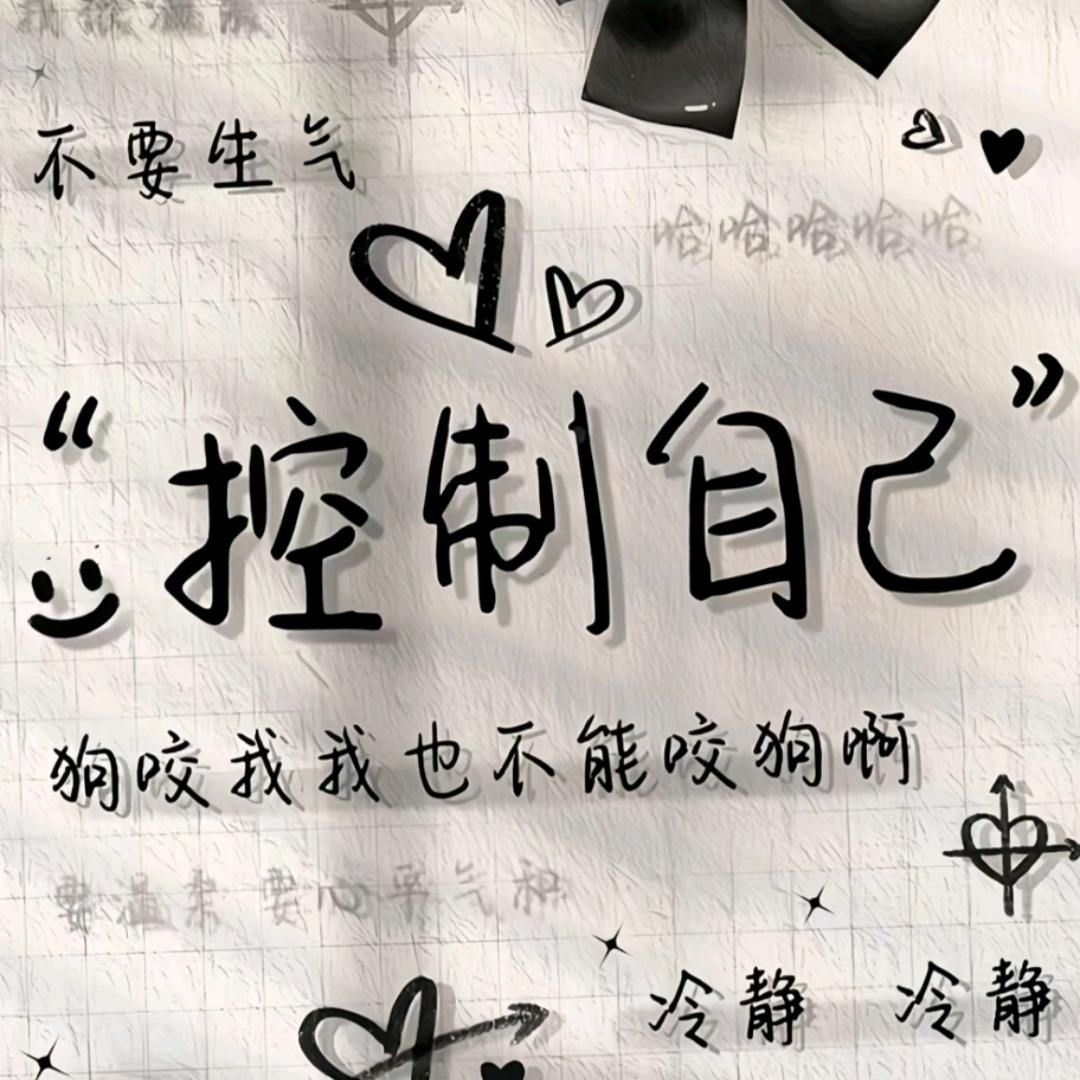 不要生气
哈哈哈哈哈
“控制自己”
狗咬我我也不能咬狗啊
要温柔 要心平气和
冷静 冷静